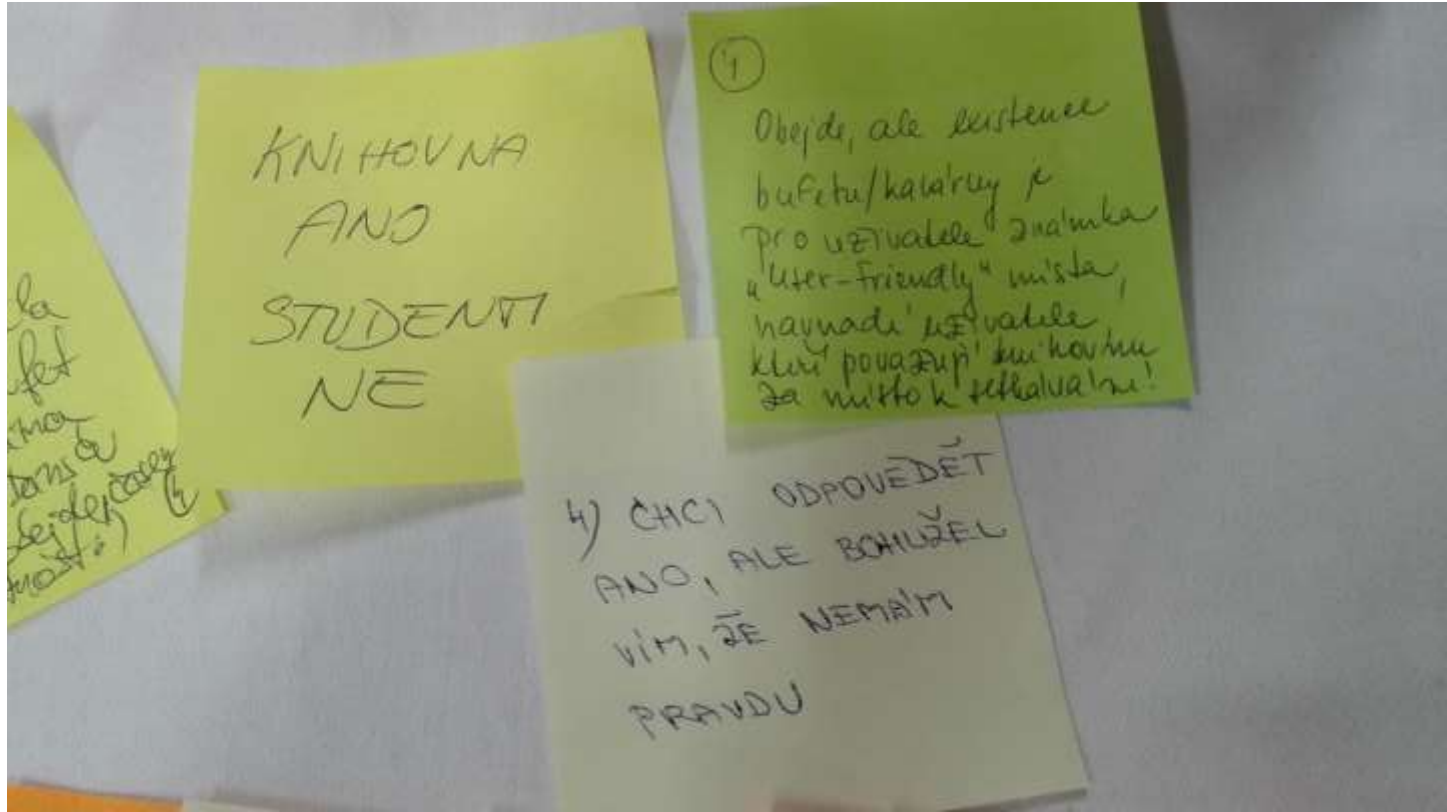 KNIHOVNA
ANO
STUDENTI
NE
4
Obejde, ale existence
bufetu/kavárny je
pro uživatele známka
„User-friendly" místa,
navnadí uživatele,
kteří považují knihovnu
za místo k setkávání!
4) CHCI ODPOVEDĚT
ANO, ALE BOHUŽEL
VÍM, ŽE NEMÁM
PRAVDU